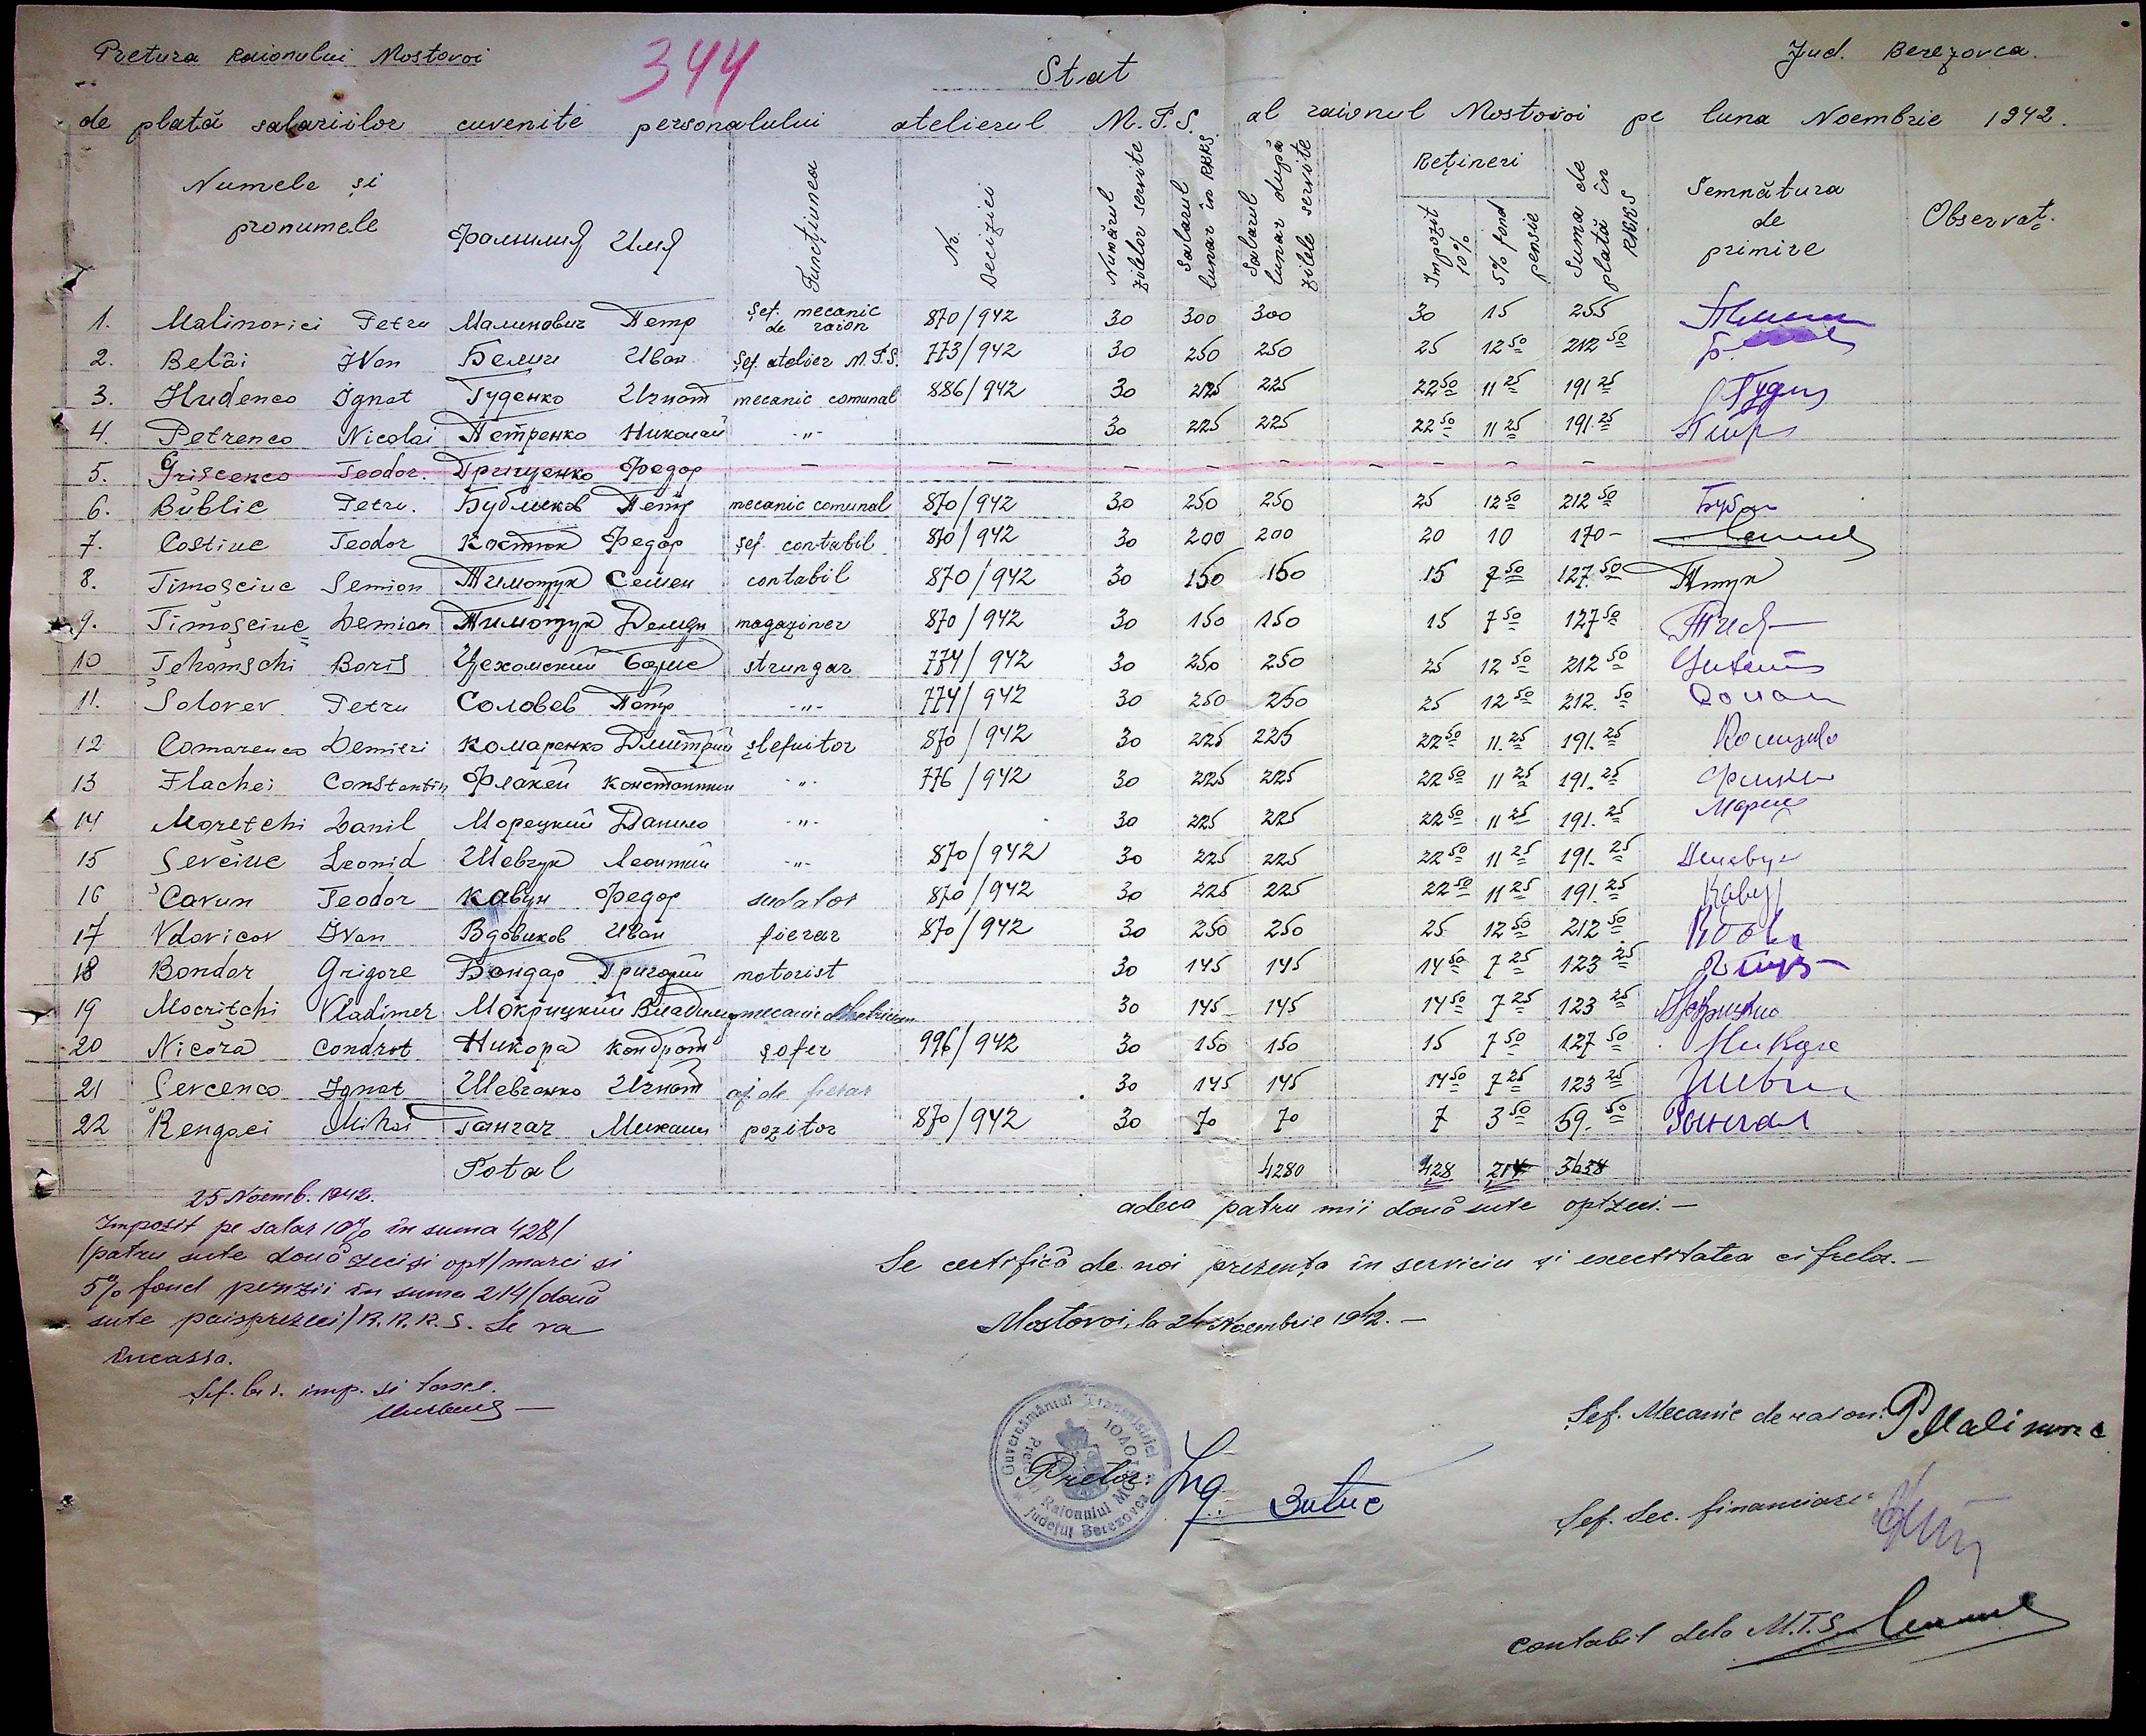 Pretura Raionului Mostovoi
344
Stat
Jud. Berezovca.
de plată salariilor cuvenite personalului atelierul M.T.S. al raionul Mostovoi pe luna Noembrie 1942.
Numele și pronumele
Фамилия Имя
Funcțiunea
Nr. Deciziei
Numărul zilelor servite
Salarul lunar în RKKS
Salarul lunar după zilele servite
Rețineri
Impozit 10%
5% fond pensie
Suma de plată în RKKS
Semnătura de primire
Observaț.
1. Malinovici Petru Малинович Петр șef. mecanic de raion 870/942 30 300 300 30 15 255
2. Belâi Ivan Белыи Иван șef. atelier M.T.S. 773/942 30 250 250 25 12 50 212 50
3. Hudenco Ignat Гуденко Игнат mecanic comunal 886/942 30 225 225 22 50 11 25 191 25
4. Petrenco Nicolai Петренко Николай -"- 30 225 225 22 50 11 25 191. 25
5. Grișcenco Teodor. Грищенко Федор — — — — — — — — —
6. Bublic Petru. Бубликов Петр mecanic comunal 870/942 30 250 250 25 12 50 212 50
7. Costiuc Teodor Костюк Федор șef. contabil 870/942 30 200 200 20 10 170-
8. Timoșciuc Semion Тимощук Семен contabil 870/942 30 150 150 15 7 50 127. 50
9. Timoșciuc Demian Тимощук Демиян magaziner 870/942 30 150 150 15 7 50 127 50
10 Țehomschi Boris Цехомский Борис strungar 774/942 30 250 250 25 12 50 212 50
11. Solovev Petru Соловев Петр -"- 774/942 30 250 250 25 12 50 212. 50
12 Comarenco Demitri Комаренко Дмитрий șlefuitor 870/942 30 225 225 22 50 11. 25 191. 25
13 Flachei Constantin Флакей Константин -"- 776/942 30 225 225 22 50 11 25 191. 25
14 Morețchi Danil Морецкий Данило -"- 30 225 225 22 50 11 25 191. 25
15 Șevciuc Leonid Шевчук Леонтий -"- 870/942 30 225 225 22 50 11 25 191. 25
16 Cavun Teodor Кавун Федор sudator 870/942 30 225 225 22 50 11 25 191. 25
17 Vdovicov Ivan Вдовиков Иван fierar 870/942 30 250 250 25 12 50 212 50
18 Bondar Grigore Бондар Григорий motorist 30 145 145 14 50 7 25 123 25
19 Mocrițchi Vladimer Мокрицкий Владимир mecanic 30 145 145 14 50 7 25 123 25
20 Nicora Condrat Никора Кондрат șofer 996/942 30 150 150 15 7 50 127 50
21 Șevcenco Ignat Шевченко Игнат aj. de fierar 30 145 145 14 50 7 25 123 25
22 Rengaci Mihai Михаил pozitor 870/942 30 70 70 7 3 50 59. 50
Total 4280 428 214 3638
adeca patru mii două sute optzeci.—
25 Noemb. 1942.
Impozit pe salar 10% în suma 428/
/patru sute două zeci și opt/ marci si
5% fond penzii în suma 214/două
sute paisprezeci/ R.K.K.S. se va
încassa.
Șef. bir. imp. si taxe.
Se certifică de noi prezența în serviciu și exactitatea cifrelor.—
Mostovoi, la 24 Noembrie 1942.—
Guvernământul Transnistriei
Pretura Raionului MOSTOVOI
Județul Berezovca
Pretor: Ing.
Șef. Mecanic de raion: P Malinovic
Șef. Sec. financiară
Contabil dela M.T.S.